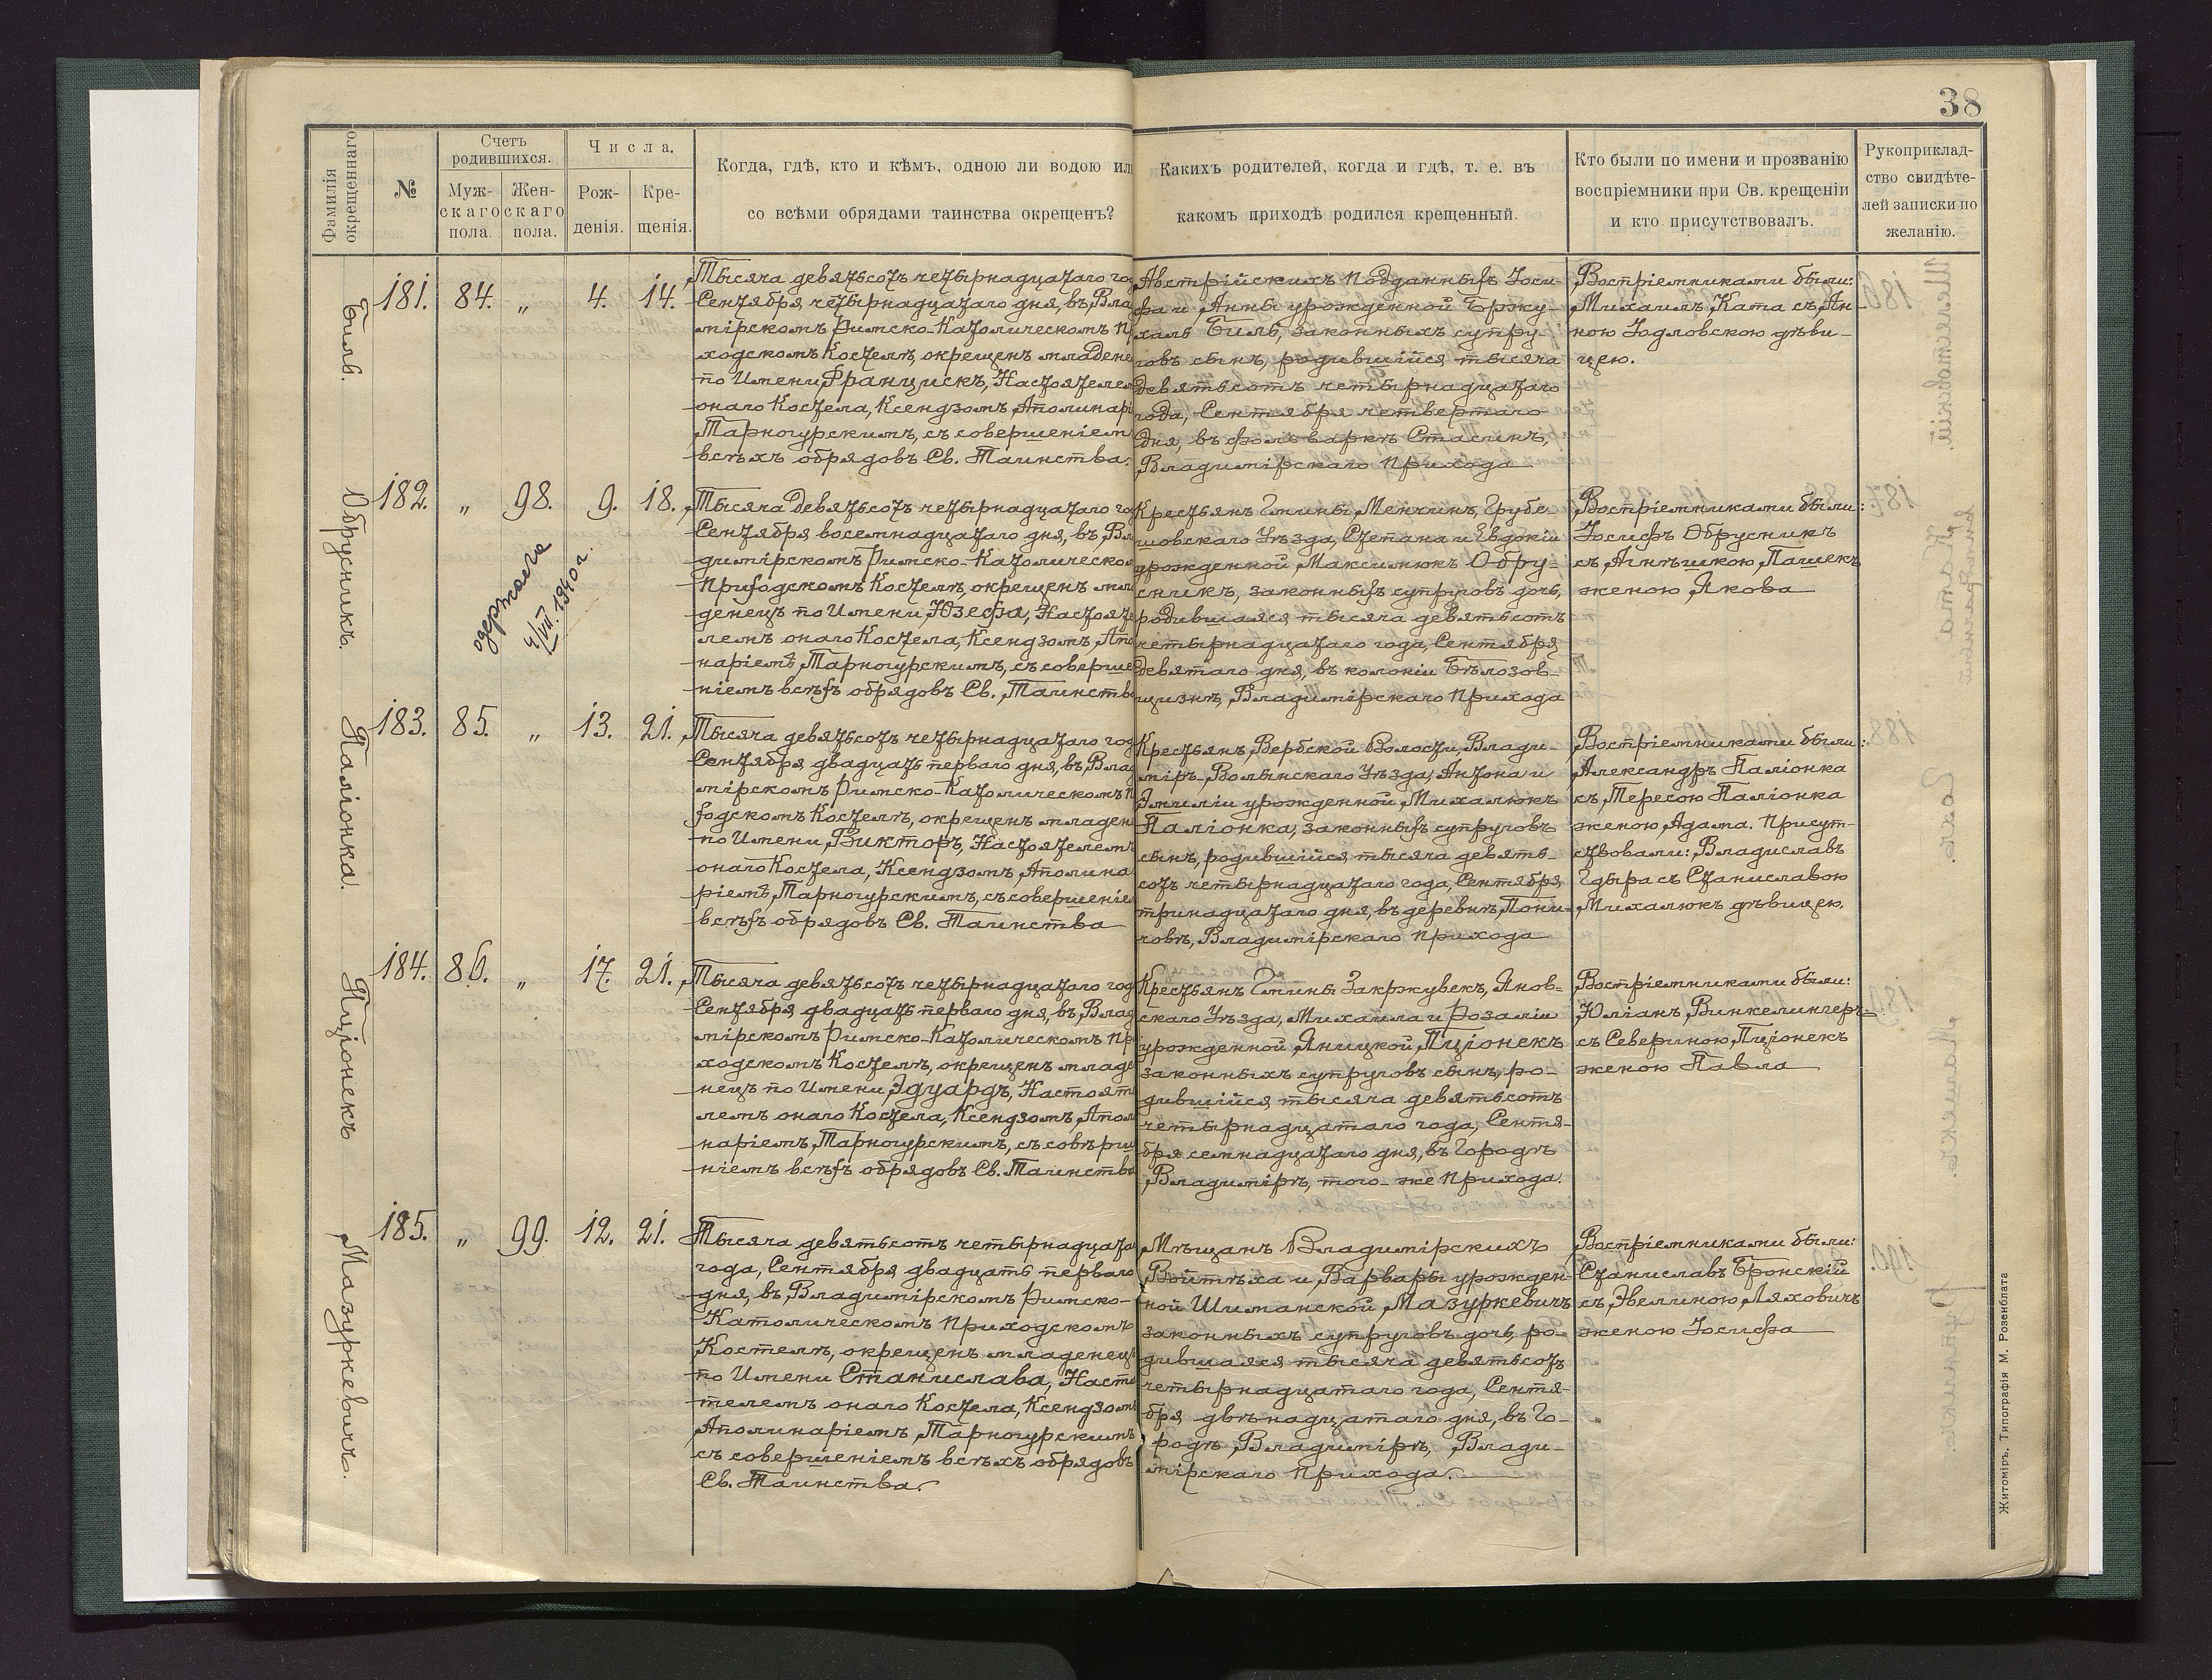 38
Фамилія окрещеннаго.
№
Счетъ родившихся.
Муж-скаго пола.
Жен-скаго пола.
Числа.
Рож-денія.
Кре-щенія.
Когда, гдѣ, кто и кѣмъ, одною ли водою ил
со всѣми обрядами таинства окрещенъ?
Какихъ родителей, когда и гдѣ, т. е. въ
какомъ приходѣ родился крещенный.
Кто были по имени и прозванію
воспріемники при Св. крещеніи
и кто присутствовалъ.
Рукоприклад-
ство свидѣте-
лей записки по
желанію.
Биль.
181. 84. „ 4. 14.
Тысяча девятьсотъ четырнадцатаго го
Сентября четырнадцатаго дня, въ Вла
мірскомъ Римско-Католическомъ П
ходскомъ Костелѣ, окрещенъ младене
по Имени Францискъ, Настоятеле
онаго Костела, Ксендзомъ Аполинарі
Тарногурскимъ, съ совершеніем
всѣхъ обрядовъ Св. Таинства.
Австрійскихъ подданныхъ Іоси-
фа и Анны урожденной Бржу-
халь Биль, законныхъ супру-
говъ сынъ, родившійся тысяча
девятьсотъ четырнадцатаго
года, Сентября четвертаго
дня, въ фольваркѣ Стасинъ,
Владимірскаго прихода
Воспріемниками были:
Михаилъ Ката съ Ан-
ною Іодловскою дѣви-
цею.
Обрусникъ.
182. „ 98. 9. 18.
одержала
4/VII. 1940 г.
Тысяча девятьсотъ четырнадцатаго го
Сентября восемнадцатаго дня, въ Вл
димірскомъ Римско-Католическо
Приходскомъ Костелѣ, окрещенъ мла
денецъ по Имени Юзефа, Настояте
лемъ онаго Костела, Ксендзомъ Апо
наріемъ Тарногурскимъ, съ соверше
ніемъ всѣхъ обрядовъ Св. Таинств
Крестьянъ Гмины Менчинъ, Грубе-
шовскаго Уѣзда, Степана и Евдокіи
урожденной Максимюкъ Обру-
сникъ, законныхъ супруговъ дочь,
родившаяся тысяча девятьсотъ
четырнадцатаго года, Сентября
девятаго дня, въ колоніи Бѣлозов-
щизнѣ, Владимірскаго прихода
Воспріемниками были:
Іосифъ Обрусникъ
съ Агнѣшкою Пашекъ
женою Якова
Паліонка.
183. 85. „ 13. 21.
Тысяча девятьсотъ четырнадцатаго год
Сентября двадцать перваго дня, въ Влад
мірскомъ Римско-Католическомъ П
ходскомъ Костелѣ, окрещенъ младен
по Имени Викторъ, Настоятелемъ
онаго Костела, Ксендзомъ Аполина
ріемъ Тарногурскимъ, съ совершеніе
всѣхъ обрядовъ Св. Таинства
Крестьянъ Вербской Волости, Влади-
міръ-Волынскаго Уѣзда, Антона и
Эмиліи урожденной Михалюкъ
Паліонка, законныхъ супруговъ
сынъ, родившійся тысяча девять-
сотъ четырнадцатаго года, Сентября
тринадцатаго дня, въ деревнѣ Пони-
човѣ, Владимірскаго прихода
Воспріемниками были:
Александръ Паліонка
съ Тересою Паліонка
женою Адама. Присут-
ствовали: Владиславъ
Гдыра съ Станиславою
Михалюкъ дѣвицею.
Пціонекъ
184. 86. „ 17. 21.
Тысяча девятьсотъ четырнадцатаго год
Сентября двадцать перваго дня, въ Влад
мірскомъ Римско-Католическомъ Пр
ходскомъ Костелѣ, окрещенъ младе
нецъ по Имени Эдуардъ, Настояте
лемъ онаго Костела, Ксендзомъ Апол
наріемъ Тарногурскимъ, съ совѣрш
ніемъ всѣхъ обрядовъ Св. Таинства
Крестьянъ Гмины Закржувекъ, Янов-
скаго Уѣзда, Михаила и Розаліи
урожденной Яницкой Пціонекъ
законныхъ супруговъ сынъ, ро-
дившійся тысяча девятьсотъ
четырнадцатаго года, Сентя-
бря семнадцатаго дня, въ Городѣ
Владимірѣ, того-же прихода.
Воспріемниками были:
Юліанъ Винкелингеръ
съ Севериною Пціонекъ
женою Павла
Мазуркевичъ.
185. „ 99. 12. 21.
Тысяча девятьсотъ четырнадцата
года, Сентября двадцать перваго
дня, въ Владимірскомъ Римско-
Католическомъ приходскомъ
Костелѣ, окрещенъ младенецъ
по Имени Станислава, Насто
телемъ онаго Костела, Ксендзомъ
Аполинаріемъ Тарногурскимъ
съ совершеніемъ всѣхъ обрядовъ
Св. Таинства.
Мѣщанъ Владимірскихъ
Войтѣха и Варвары урожден-
ной Шиманской Мазуркевичъ
законныхъ супруговъ дочь, ро-
дившаяся тысяча девятьсотъ
четырнадцатаго года, Сентя-
бря двѣнадцатаго дня, въ Го-
родѣ Владимірѣ, Влади-
мірскаго прихода.
Воспріемниками были:
Станиславъ Бронскій
съ Эвелиною Ляховичъ
женою Іосифа
Житоміръ, Типографія М. Розенблата